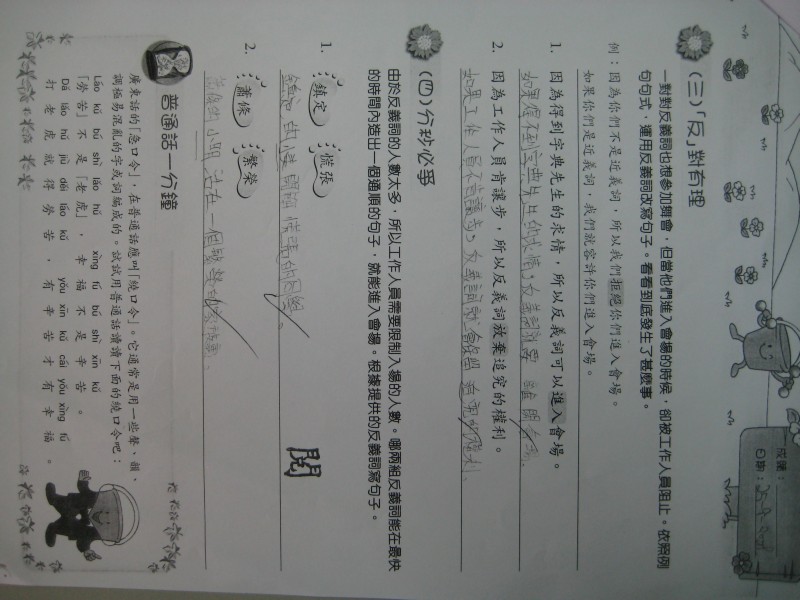 成績：
日期：
(三)「反」對有理
一對對反義詞也想參加舞會，但當他們進入會場的時候，卻被工作人員阻止。依照例
句句式，運用反義詞改寫句子。看看到底發生了甚麼事。
例：因為你們不是近義詞，所以我們拒絕你們進入會場。
如果你們是近義詞，我們就容許你們進入會場。
1. 因為得到字典先生的求情，所以反義詞可以進入會場。
如果得不到字典先生的求情，反義詞就要離開會場。
2. 因為工作人員肯讓步，所以反義詞放棄追究的權利。
如果工作人員不肯讓步，反義詞就會保留追究的權利。
(四)分秒必爭
由於反義詞的人數太多，所以工作人員需要限制入場的人數。哪兩組反義詞能在最快
的時間內造出一個通順的句子，就能進入會場。根據提供的反義詞寫句子。
1. 鎮定 慌張
鎮定的小美 慌張的同學。
閱
2. 蕭條 繁榮
蕭條的小 活在一個繁榮的
普通話一分鐘
廣東話的「急口令」，在普通話應叫「繞口令」。它通常是用一些聲、韻、
調極易混亂的字或詞編成的。試試用普通話讀讀下面的繞口令吧：
Láo kǔ bú shì lǎo hǔ xìng fú bú shì xīn kǔ
「勞苦」不是「老虎」，幸福不是辛苦。
Dǎ lǎo hǔ jiù děi láo kǔ yǒu xīn kǔ cái yǒu xìng fú
打老虎就得勞苦，有辛苦才有幸福。